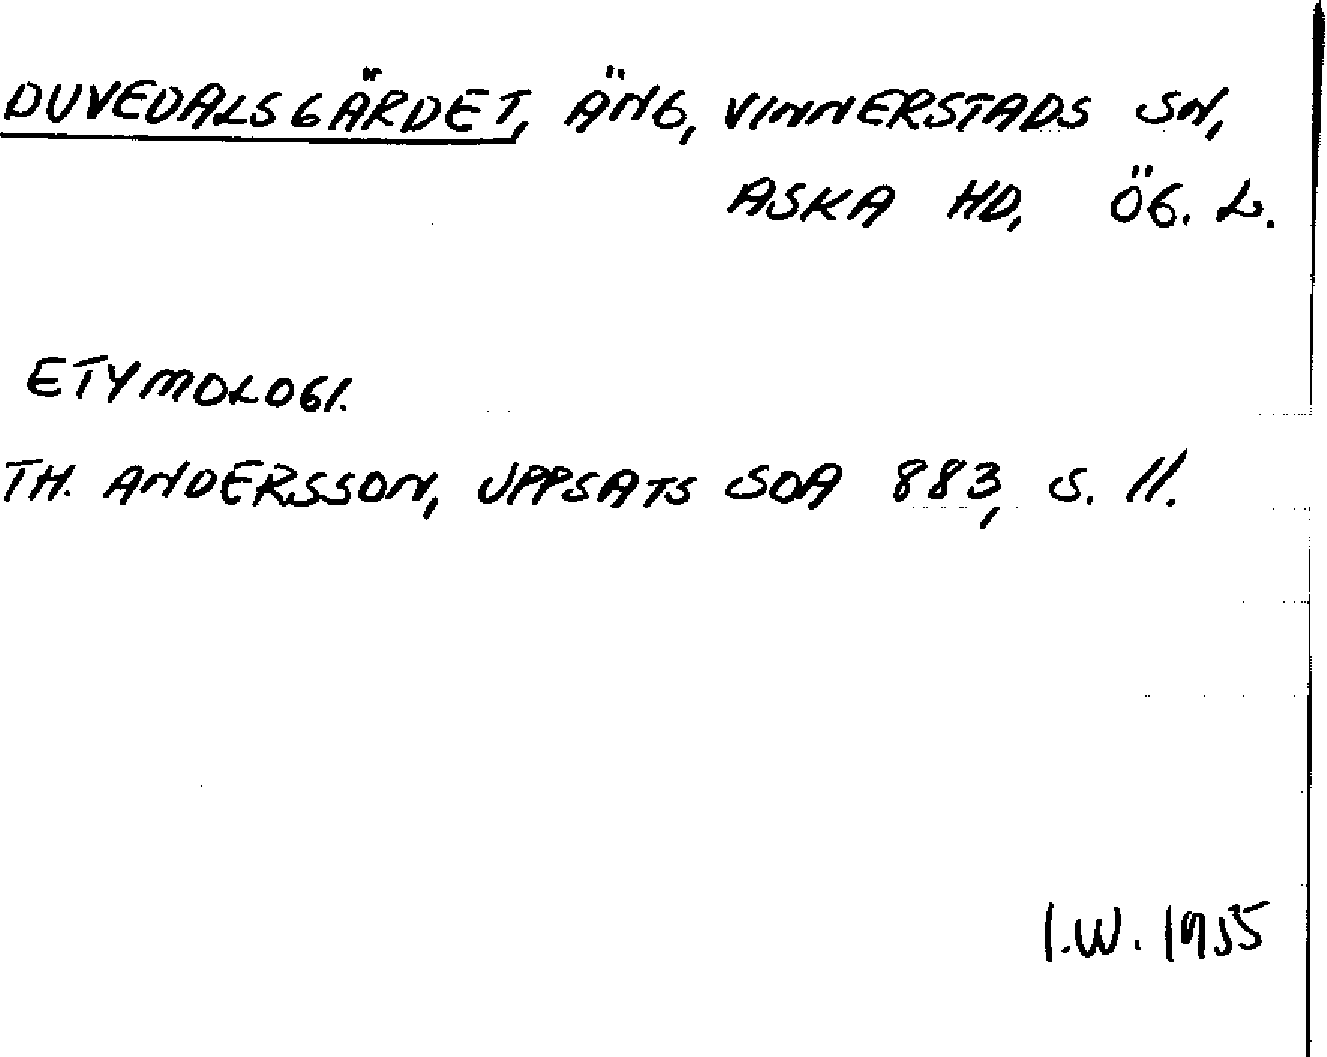 DUVEDALSGÄRDET, ÄNG, VINNERSTADS SN,
ASKA HD, ÖG. L.
ETYMOLOGI.
TH. ANDERSSON, UPPSATS SOA 883, S. 11.
I.W. 1955